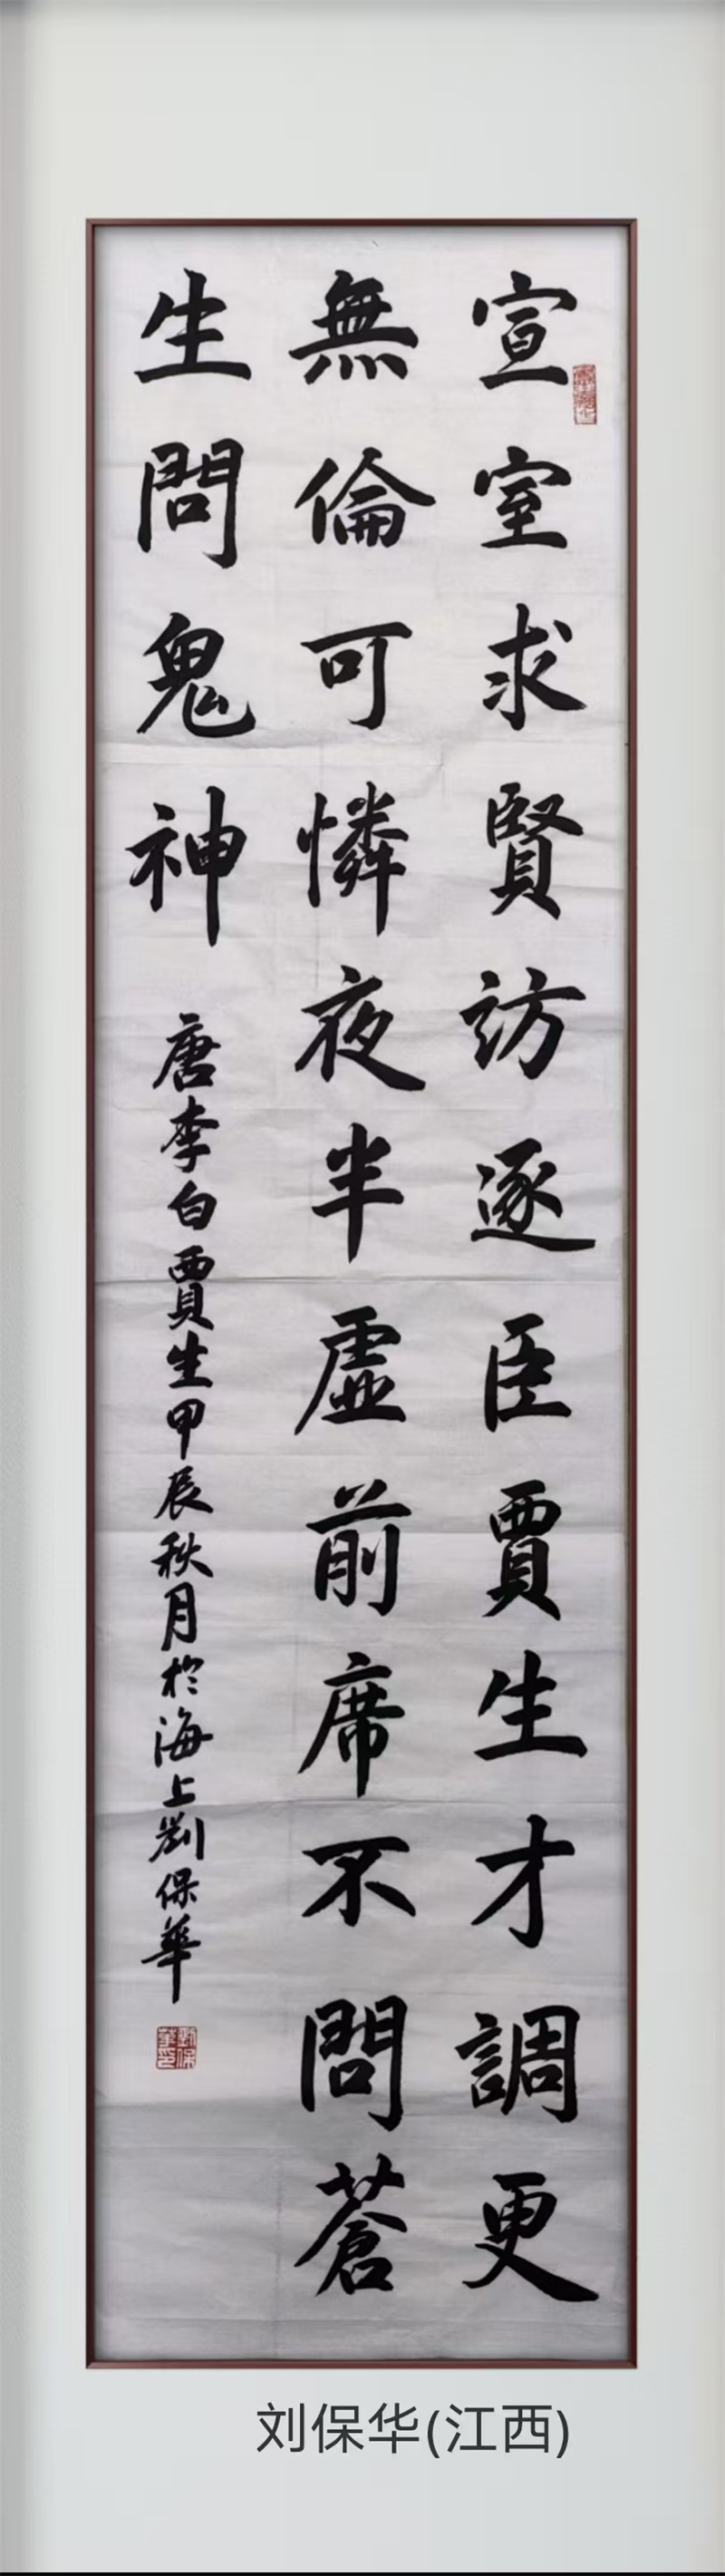 宣室求賢訪逐臣賈生才調更
無倫可憐夜半虛前席不問蒼
生問鬼神
唐李白賈生甲辰秋月於海上劉保華
劉保華印
刘保华(江西)